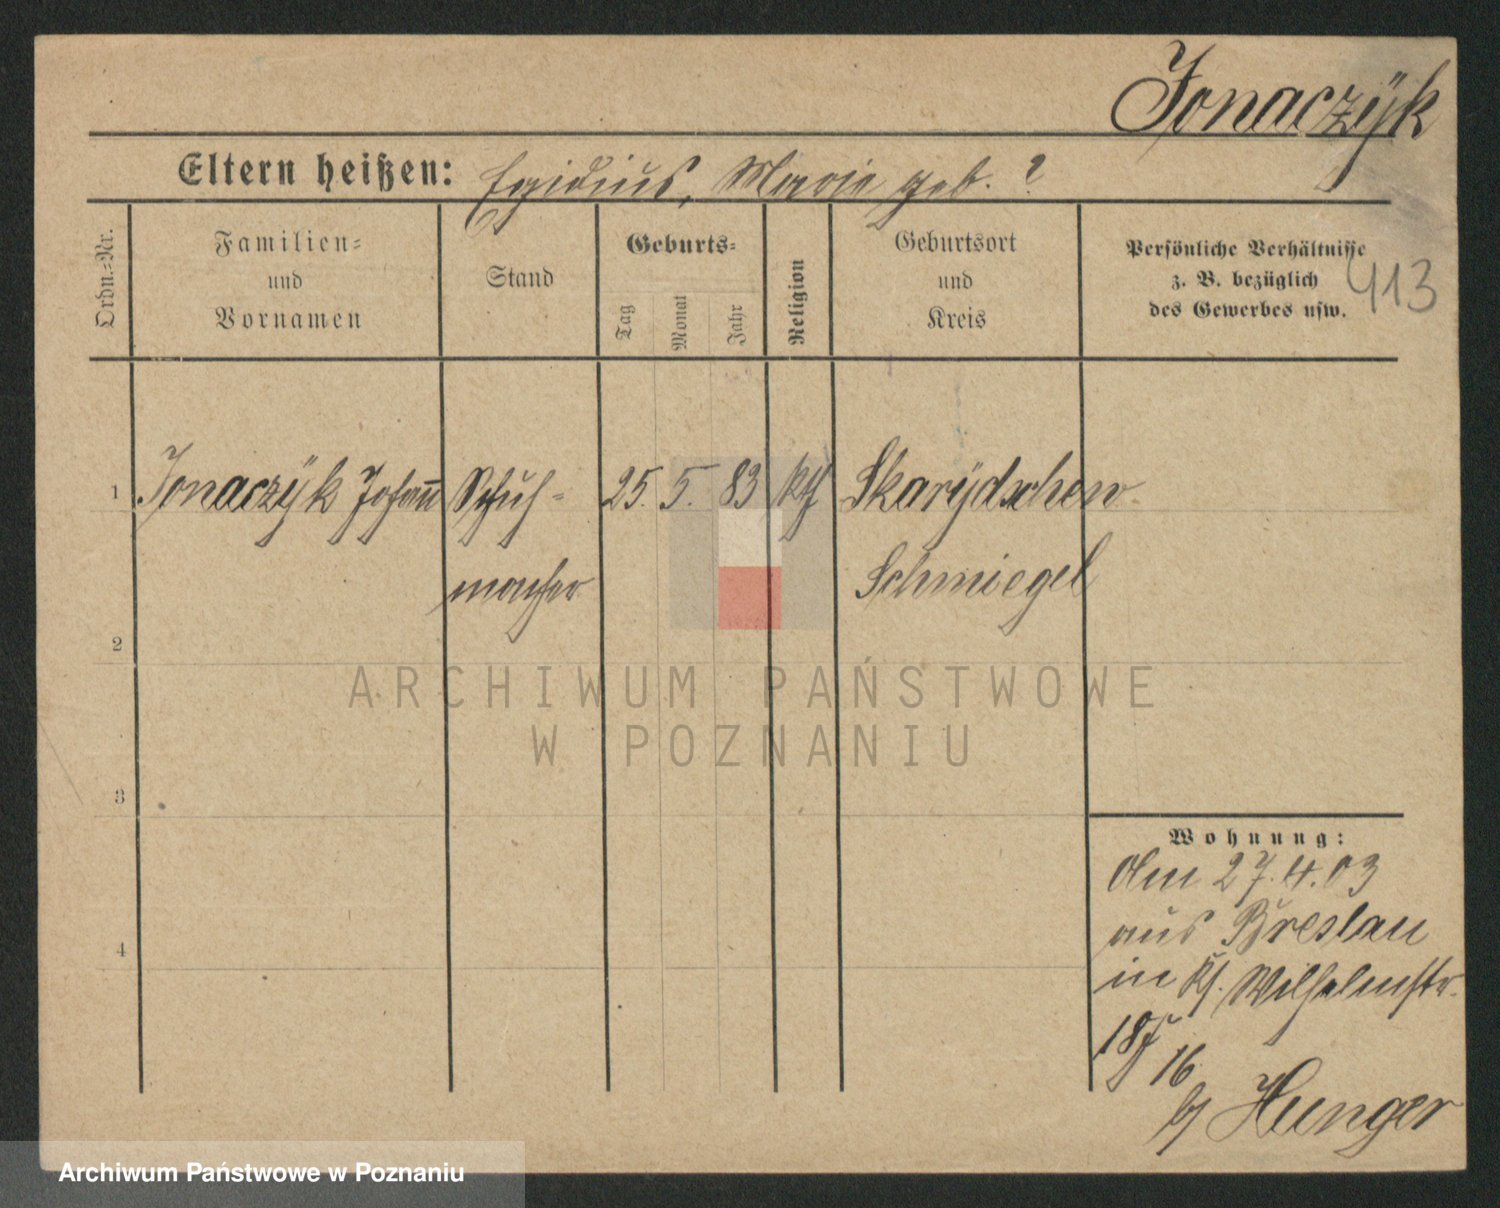 Jonaczÿk
Eltern heißen: Egidius, Marie geb. ?
Ordn.=Nr.
Familien=
und
Vornamen
Stand
Geburts=
Tag
Monat
Jahr
Religion
Geburtsort
und
Kreis
Persönliche Verhältnisse
z. B. bezüglich
des Gewerbes usw.
413
1 Jonaczÿk Johann Schuh= 25. 5. 83 kth Skarÿdschew
macher Schmiegel
2
3
4
Wohnung:
Am 27.4.03
aus Breslau
in Wilhelmstr.
18
16
b/ Hunger
ARCHIWUM PAŃSTWOWE
W POZNANIU
Archiwum Państwowe w Poznaniu